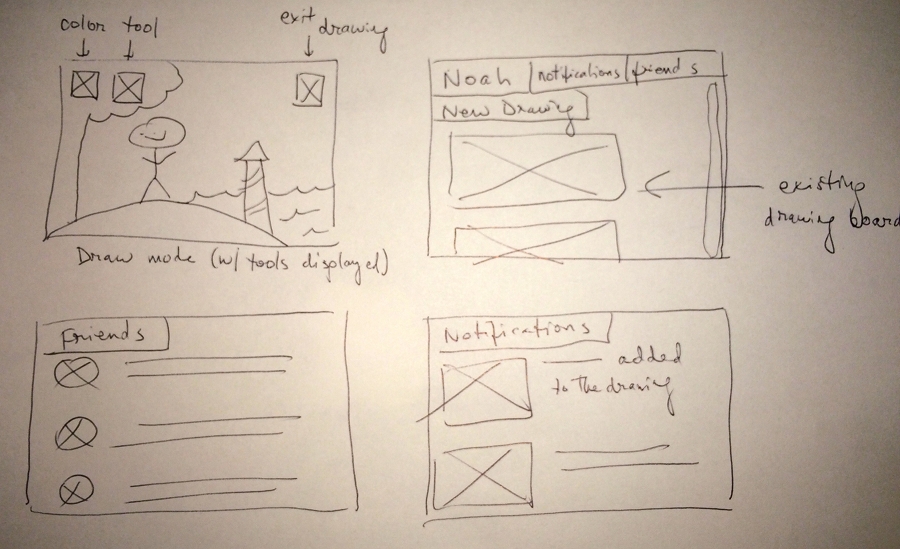 color tool
exit drawing
Draw mode (w/ tools displayed)
Noah notifications friends
New Drawing
existing
drawing board
Friends
Notifications
added
to the drawing